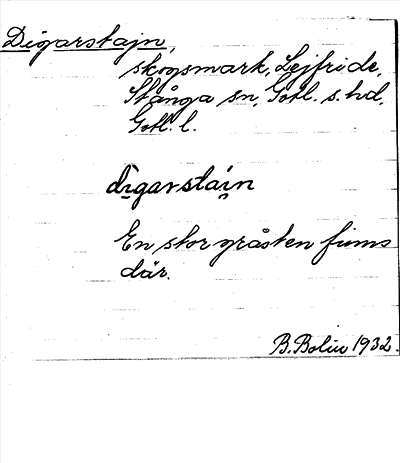 Digarstajn,
skogsmark, Lejfride,
Stånga sn, Gotl. s. hd,
Gotl. l.
digarstain
En stor gråsten finns
där.
B. Bolin 1932.